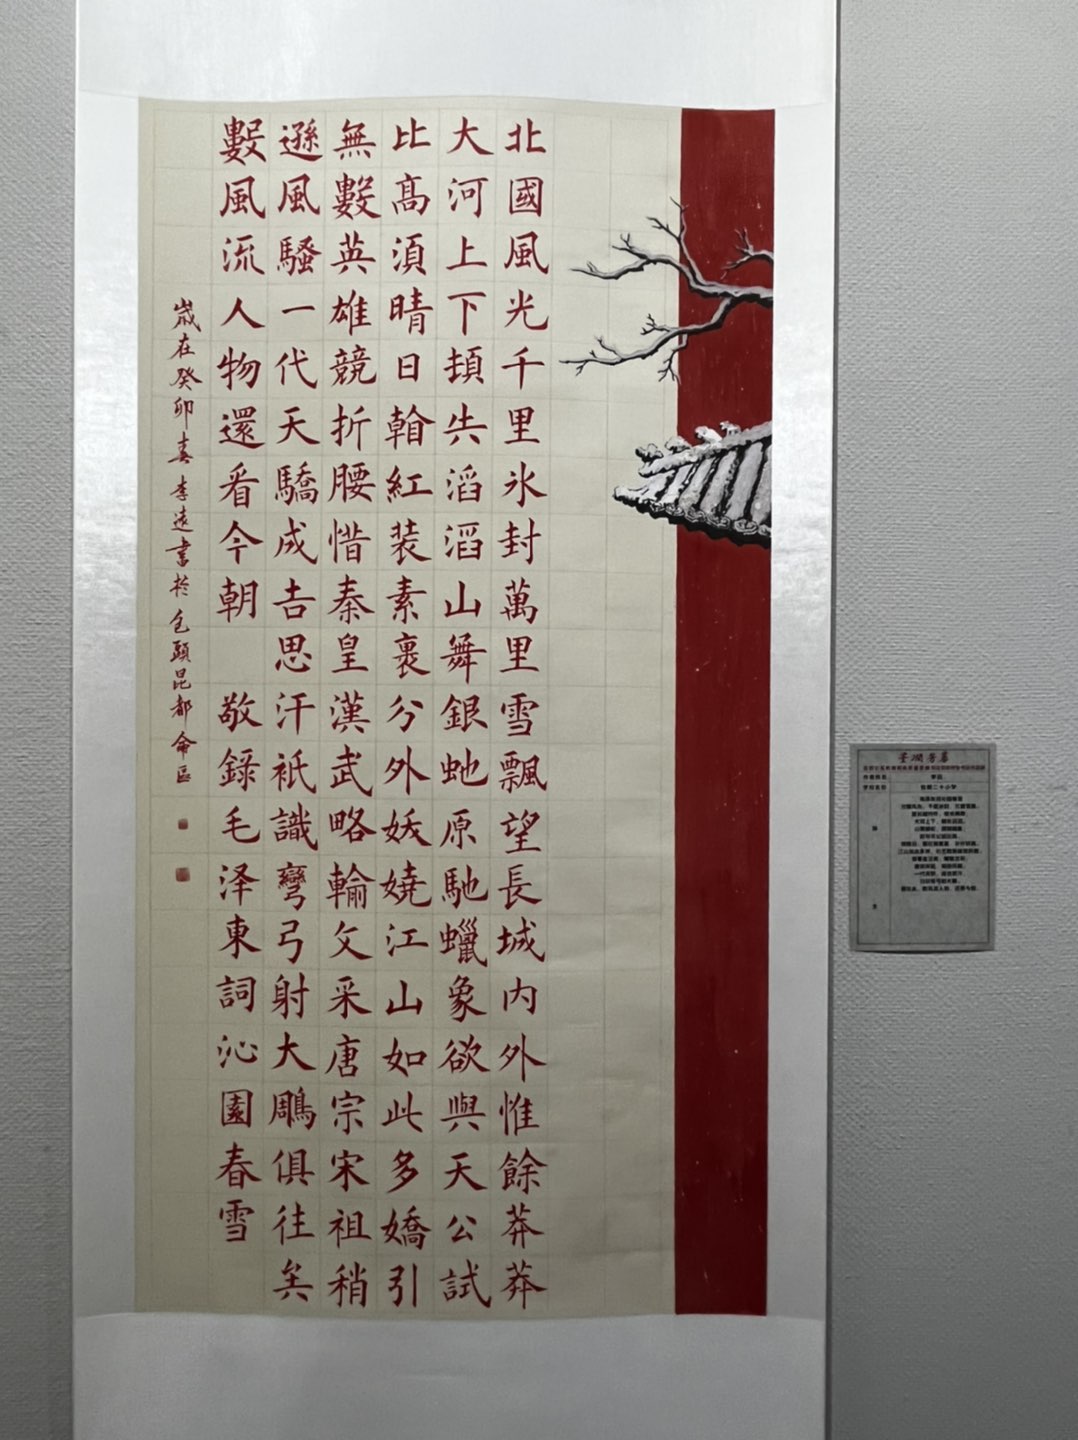 北國風光千里氷封萬里雪飄望長城内外惟餘莽莽
大河上下頓失滔滔山舞銀虵原馳蠟象欲與天公試
比髙須晴日翰紅装素裹分外妖嬈江山如此多嬌引
無數英雄競折腰惜秦皇漢武略輸文采唐宗宋祖稍
遜風騷一代天驕成吉思汗衹識彎弓射大鵰俱往矣
數風流人物還看今朝 敬錄毛泽東詞沁園春雪
歲在癸卯春李遠書於包頭昆都侖區
作者姓名 李远
学校名称 包钢二十小学